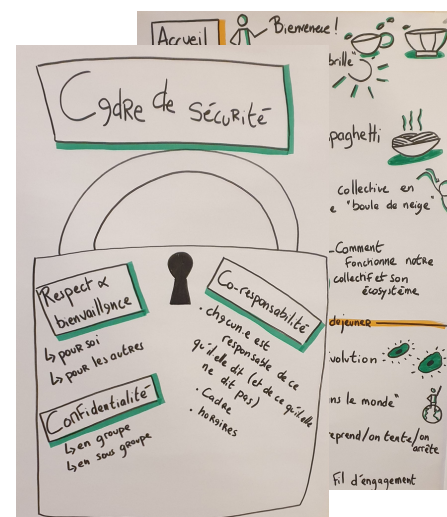 Cadre de Sécurité
Respect &
bienvaillance
↳ pour soi
↳ pour les autres
Confidentialité
↳ en groupe
↳ en sous groupe
Co-responsabilité
. chacun.e est
responsable de ce
qu'il.elle dit (et de ce qu'il.elle
ne dit pas)
. Cadre
. horaires
Accueil
Bienvenue !
brille"
paghetti
collective en
"boule de neige"
-Comment
fonchonne notre
collectif et son
écosystème
dejeuner
volution :
ns le monde"
reprend/on tente/on
arrête
Fil d'engagement